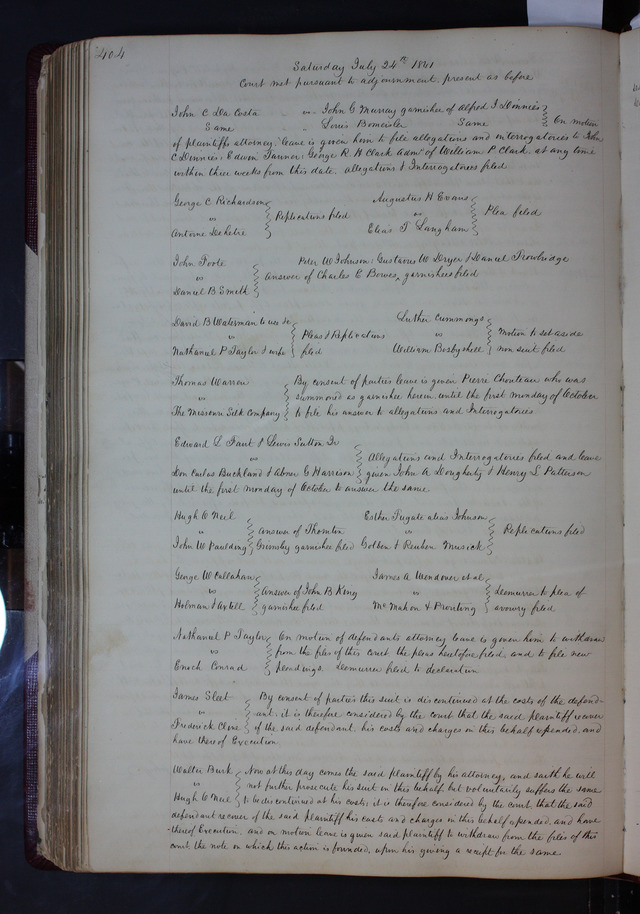 404
Saturday July 24th 1841
Court met pursuant to adjournment, present as before
John C Da Costa vs John G Murray garnishee of Alfred J Donnies
Same " Louis Bomeisler Same } On motion
of plaintiffs attorney leave is given him to file allegations and interrogatories to John
C Dinnies, Edwin Tanner, George R. H Clark Admr of William P Clark, at any time
within three weeks from this date. allegations & Interrogatories filed
George C Richardson vs Antoine Dehetre } Replications filed
Augustus H Evans vs Elias T Langham } Plea filed
John Foote vs Daniel B Smith } Peter W Johnson, Gustavus W Dryer & Daniel Trowbridge
Answer of Charles E Bowes, garnishees filed
David B Waterman to use &c vs Nathaniel P Taylor & wife } Pleas & Replications filed
Luther Cummings vs William Bosbyshell } Motion to set aside non suit filed
Thomas Warren vs The Missouri Silk Company } By consent of parties leave is given Pierre Chouteau who was
summoned as garnishee herein until the first monday of October
to file his answer to allegations and Interrogatories
Edward L Fant & Lewis Sutton Jr
vs } Allegations and Interrogatories filed and leave
Don Carlos Buckland & Abner C Harrison } given John A Dougherty & Henry S Patterson
until the first monday of October to answer the same
Hugh O Neil vs John W Paulding } Answer of Thornton Grimsley garnishee filed
Esther Fugate alias Johnson vs Golden & Reuben Musick } Replications filed
George W Callahan vs Holman & Axtell } Answer of John B King garnishee filed
James A Wendover et al vs McMahon & Bronting } Demurrer to plea of avowry filed
Nathaniel P Taylor vs Enoch Conrad } On motion of defendants attorney leave is given him to withdraw
from the files of this court the pleas heretofore filed, and to file new
pleadings. Demurrer filed to declaration
James Sleet vs Frederick Cline } By consent of parties this suit is discontinued at the costs of the defend-
ant. it is therefore considered by the court that the said plaintiff recover
of the said defendant, his costs and charges in this behalf expended, and
have thereof Execution
Walter Burk vs Hugh O Neil } Now at this day comes the said plaintiff by his attorney, and saith he will
not further prosecute his suit in this behalf, but voluntarily suffers the same
to be discontinued at his costs; it is therefore considered by the court that the said
defendant recover of the said plaintiff his costs and charges in this behalf expended, and have
thereof Execution. and on motion leave is given said plaintiff to withdraw from the files of this
court the note on which this action is founded, upon his giving a receipt for the same